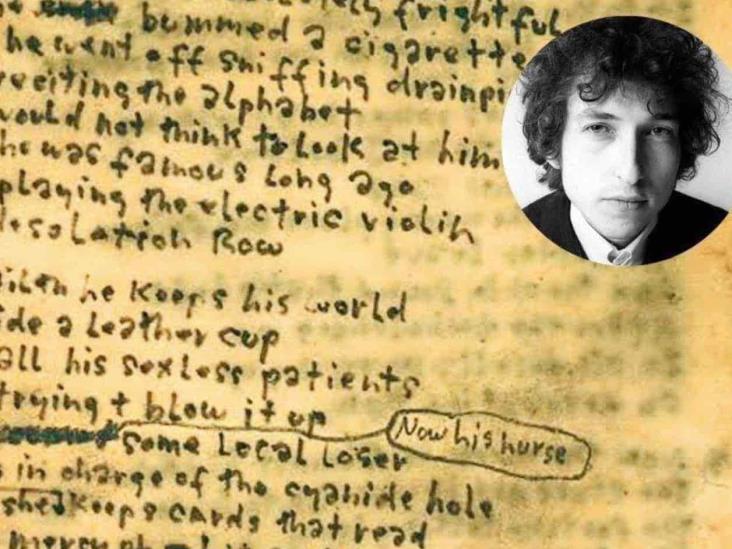 bummed a cigarette
he went off sniffing drainpi
reciting the alphabet
would not think to look at him
he was famous long ago
playing the electric violin
Desolation Row
he keeps his world
ide a leather cup
all his sexless patients
trying t blow it up
Now his nurse
some local loser
in charge of the cyanide hole
she keeps cards that read
mercy